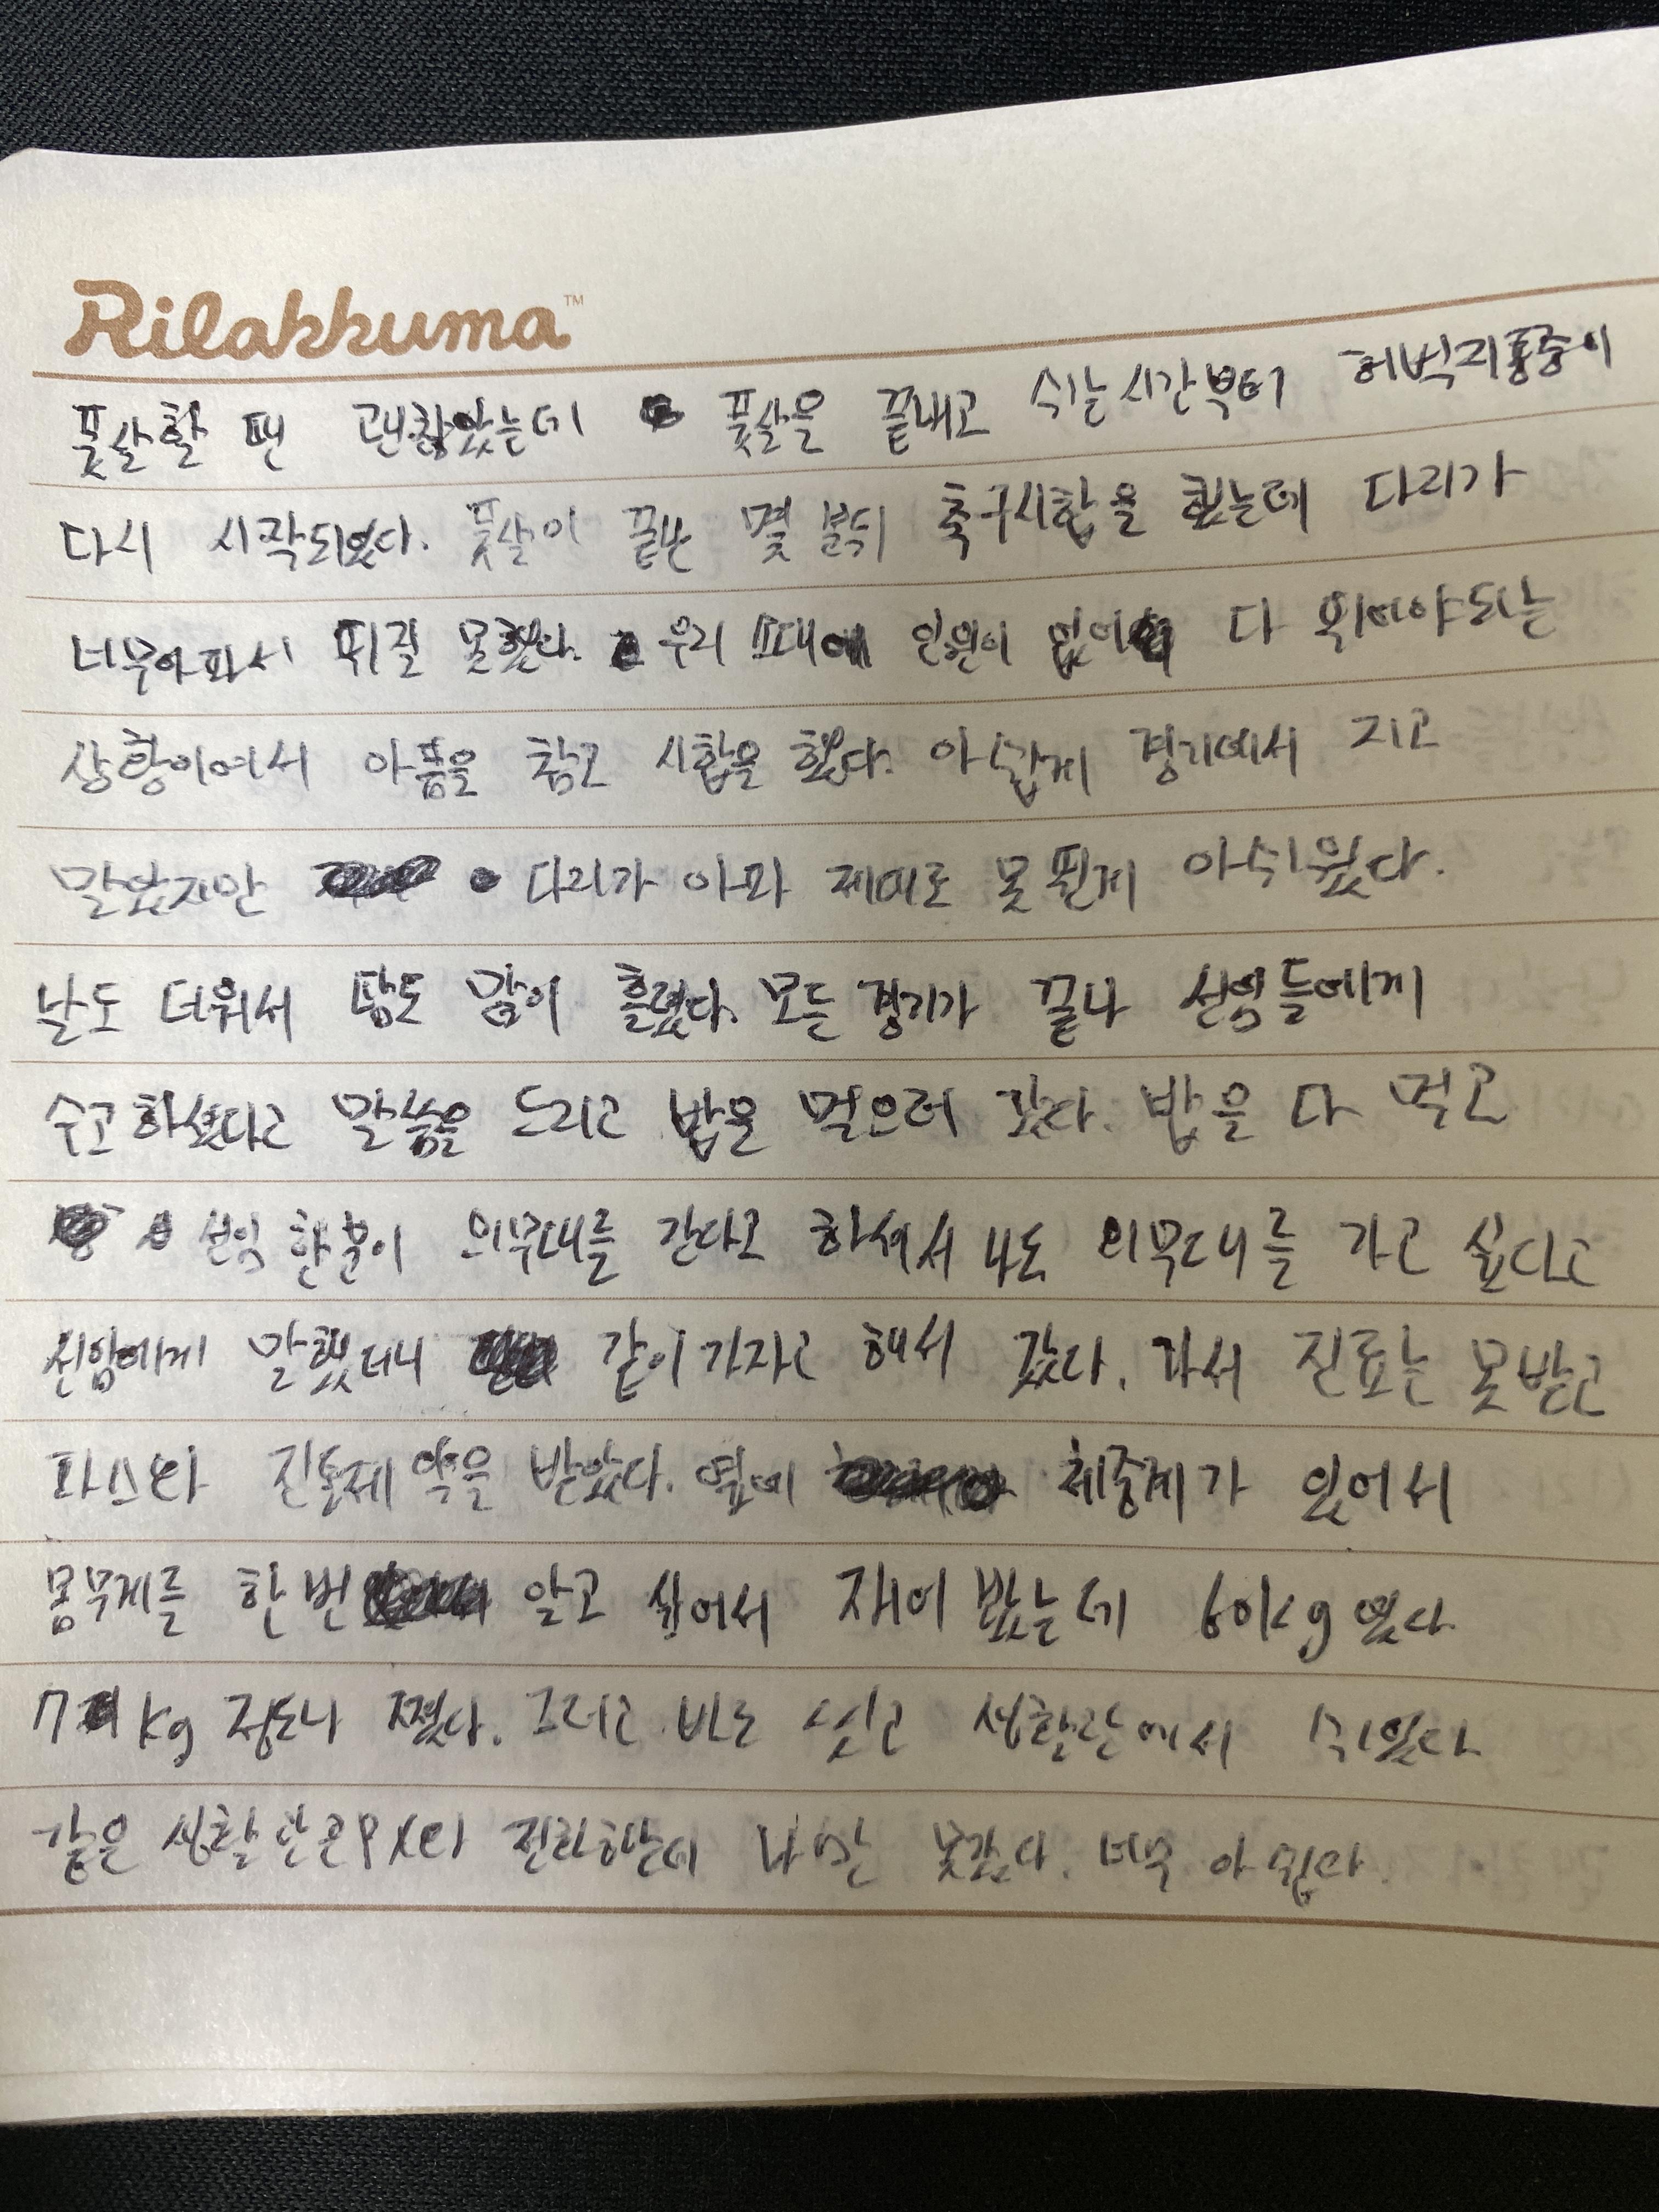 Rilakkuma™
풋살할 땐 괜찮았는데 풋살을 끝내고 쉬는시간부터 허벅지통증이
다시 시작되었다. 풋살이 끝난 몇 분뒤 축구시합을 했는데 다리가
너무아파서 뛰질 못했다. 우리 소대에 인원이 없어 다 뛰어야되는
상황이여서 아픔을 참고 시합을 했다. 아쉽게 경기에서 지고
말았지만 다리가 아파 제대로 못 뛴게 아쉬웠다.
날도 더워서 땀도 많이 흘렸다. 모든 경기가 끝나 선임들에게
수고하셨다고 말씀을 드리고 밥을 먹으러 갔다. 밥을 다 먹고
선임 한분이 의무대를 간다고 하셔서 나도 의무대를 가고 싶다고
선임에게 말했더니 같이가자고 해서 갔다. 가서 진료는 못받고
파스와 진통제 약을 받았다. 옆에 체중계가 있어서
몸무게를 한번 알고 싶어서 재어 봤는데 60kg였다.
7kg 정도나 쪘다. 그리고 바로 씻고 생활관에서 쉬었다
같은 생활관은PX와 전화하는데 나만 못갔다. 너무 아쉽다.